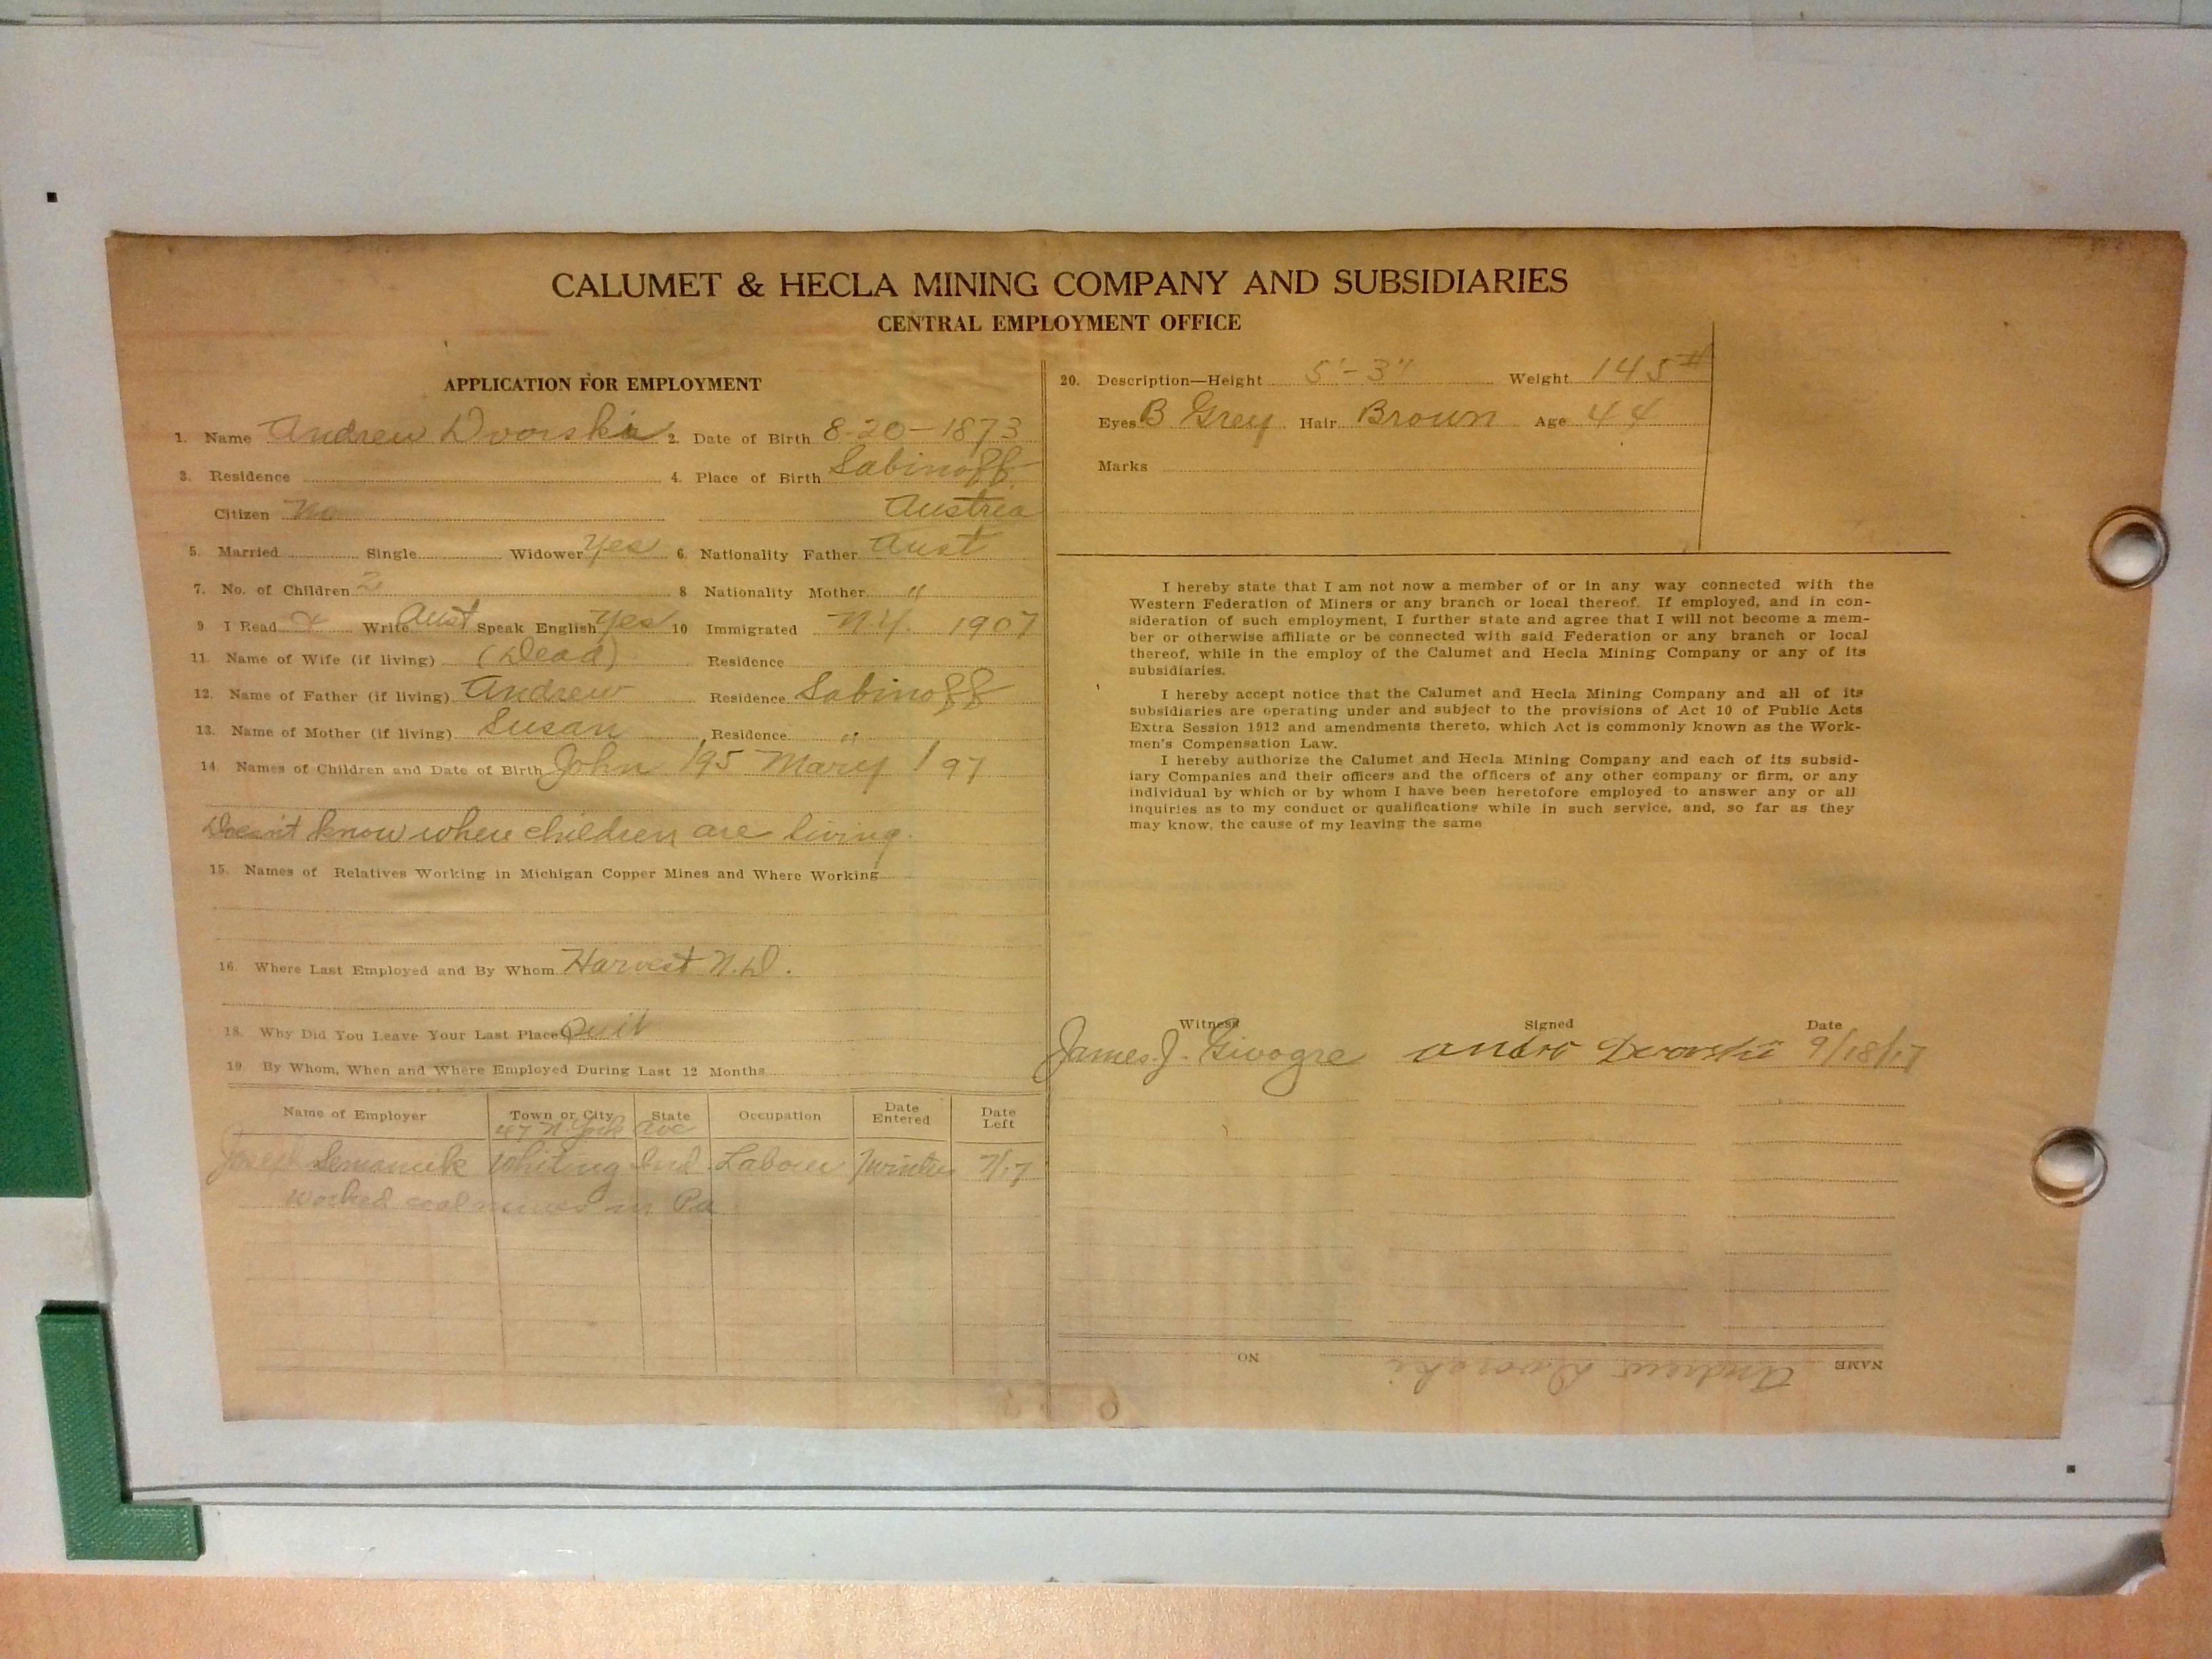 CALUMET & HECLA MINING COMPANY AND SUBSIDIARIES
CENTRAL EMPLOYMENT OFFICE
APPLICATION FOR EMPLOYMENT
1. Name Andrew Dvorski 2. Date of Birth 8-20-1873
3. Residence 4. Place of Birth Sabinoff
Citizen No Austria
5. Married Single Widower Yes 6. Nationality Father Aust
7. No. of Children 2 8 Nationality Mother "
9 I Read Write Aust Speak English Yes 10 Immigrated N.Y. 1907
11. Name of Wife (if living) (Dead) Residence
12. Name of Father (if living) Andrew Residence Sabinoff
13. Name of Mother (if living) Susan Residence "
14 Names of Children and Date of Birth John 195 Mary 197
Doesn't know where children are living.
15. Names of Relatives Working in Michigan Copper Mines and Where Working
16. Where Last Employed and By Whom Harvest N.D.
18. Why Did You Leave Your Last Place Quit
19 By Whom, When and Where Employed During Last 12 Months
Name of Employer Town or City State Occupation Date Entered Date Left
Joseph Whiting Ind Laborer 7/17
Worked coal mines in Pa
20. Description—Height 5'-3" Weight 145#
Eyes B Grey Hair Brown Age 44
Marks
I hereby state that I am not now a member of or in any way connected with the
Western Federation of Miners or any branch or local thereof. If employed, and in con-
sideration of such employment, I further state and agree that I will not become a mem-
ber or otherwise affiliate or be connected with said Federation or any branch or local
thereof, while in the employ of the Calumet and Hecla Mining Company or any of its
subsidiaries.
I hereby accept notice that the Calumet and Hecla Mining Company and all of its
subsidiaries are operating under and subject to the provisions of Act 10 of Public Acts
Extra Session 1912 and amendments thereto, which Act is commonly known as the Work-
men's Compensation Law.
I hereby authorize the Calumet and Hecla Mining Company and each of its subsid-
iary Companies and their officers and the officers of any other company or firm, or any
individual by which or by whom I have been heretofore employed to answer any or all
inquiries as to my conduct or qualifications while in such service, and, so far as they
may know, the cause of my leaving the same
Witness Signed Date
James J. Dvorski 9/18/17
NAME Andrew Dvorski NO